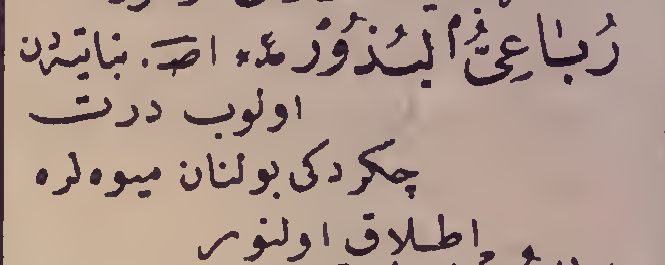 رُبَاعِىُّ البُذُورْ عـ٭ اصـ. نباتیهدن
اولوب درت
چكردكى بولنان میوه‌لره
اطلاق اولنور